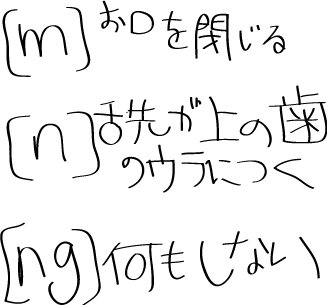 [m] お口を閉じる
[n] 舌先が上の歯
のウラにつく
[ng] 何もしない